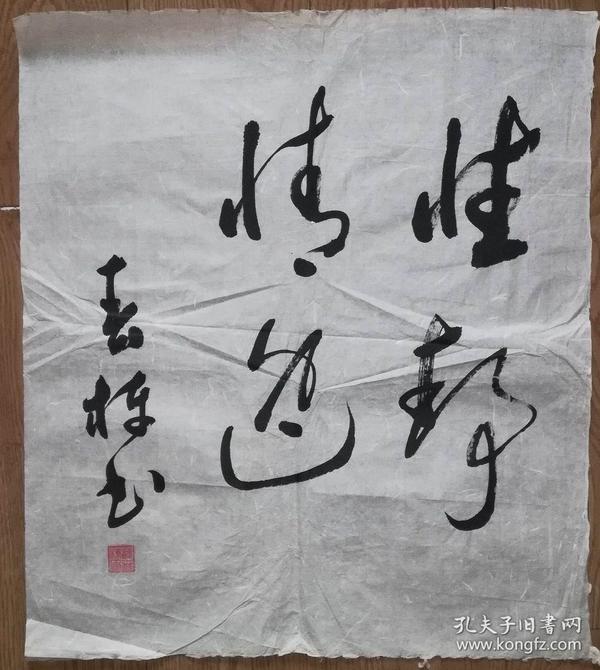 性静
情逸
春栋书
孔夫子旧书网
www.kongfz.com